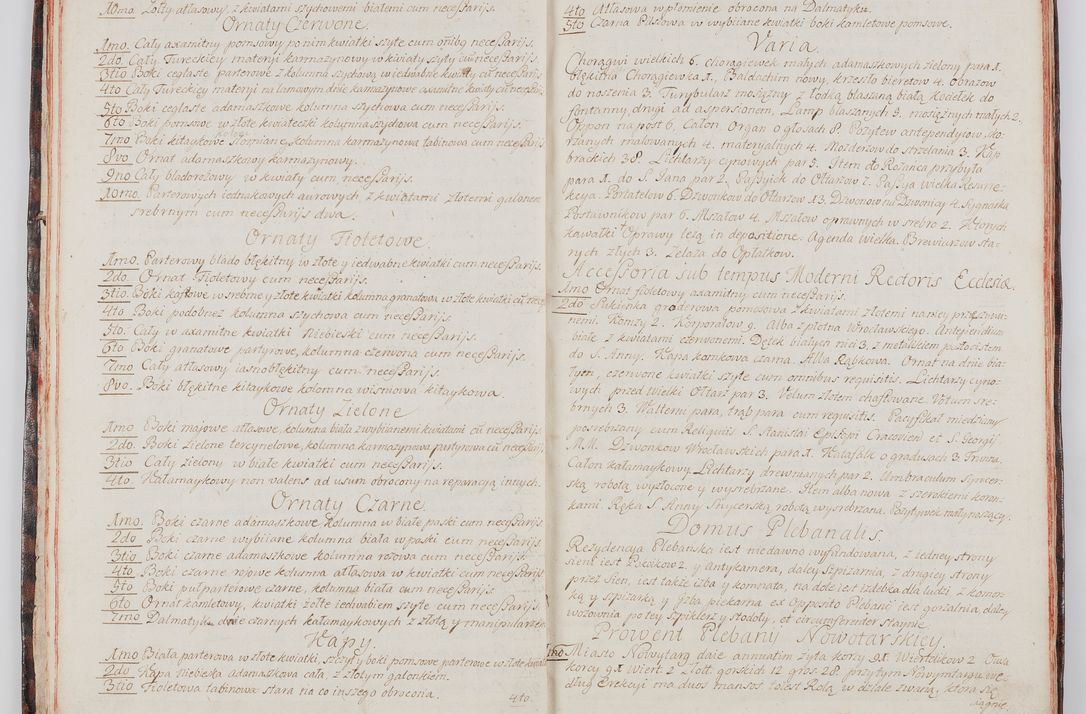 10mo. Zołty atłasowy, z kwiatami szychowemi białemi cum necessarijs.
Ornaty Czerwone.
1mo. Cały axamitny pomsowy po nim kwiatki szyte cum onibq necessarijs.
2do. Cały Tureckiey materyi karmazynowy w kwiaty szyty cum necessarijs.
3tio Boki ceglaste parterowe z kolumną szychową w iedwabne kwiaty cum necessarijs
4to Cały Tureckiey materyi na lamowym dnie karmazynowe axamitne kwiaty cum necessarijs
5to Boki ceglaste adamaszkowe kolumna szychowa cum necessarijs.
6to Boki pomsowe w złote kwiateczki kolumna szychowa cum necessarijs.
7mo Boki kitaykowe słomiane kolumna karmazynowa tabinowa cum necessarijs.
8vo. Ornat adamaszkowy karmazynowy.
9no Cały bladorożowy w kwiaty cum necessarijs.
10mo. Parterowych iednakowych aurowych, z kwiatami złotemi galonem
srebrnym cum necessarijs dwa.
Ornaty Fioletowe.
1mo. Parterowy blado błękitny w złote y iedwabne kwiatki cum necessarijs.
2do. Ornat Fioletowy cum necessarijs.
3tio. Boki kafowe w srebrne y złote kwiatki kolumna granatowa w złote kwiatki cum necess
4to Boki podobnez kolumna szychowa cum necessarijs.
5to. Cały w axamitne kwiatki Niebieski cum necessarijs.
6to Boki granatowe partyrowe, kolumna czerwona cum necessarijs.
7mo Cały atłasowy iasnobłękitny cum necessarijs.
8vo. Boki błękitne kitaykowe kolomna wisniowa kitaykowa.
Ornaty Zielone
1mo Boki majowe atłasowe, kolumna biała z wybiianemi kwiatami cum necessarijs.
2do. Boki zielone tercynelowe, kolumna karmazynowa partyrowa cum necessarijs,
3tio Cały zielony w białe kwiatki cum necessarijs.
4to. Kałamaykowy non valens ad usum obrocony na reparacyą innych.
Ornaty Czarne.
1mo. Boki czarne adamaszkowe kolumna w białe paski cum necessarijs.
2do Boki czarne wybiiane kolumna biała w paski cum necessarijs.
3tio Boki czarne adamaszkowe kolumna rożowa cum necessarijs.
4to Boki czarne rojowe kolumna atłasowa w kwiatki cum necessarijs.
5to Boki pułparterowe czarne, kolumna biała cum necessarijs.
6to Ornat kamletowy, kwiatki żołte iedwabiem szyte cum necessarijs.
7mo Dalmatyki dwie czarnych kałamaykowych z stołą y manipularzem
Kapy.
1mo Biała parterowa w złote kwiatki, szczyt y boki pomsowe parterowe w złote kwiatki
2do. Kapa niebieska adamaszkowa cała z złotym galonkiem.
3tio Fioletowa tabinowa stara na co inszego obrocona.
4to.
4to Atłasowa w płomienie obrocona na Dalmatyki.
5to Czarna Plisowa w wybiiane kwiatki boki kamletowe pomsowe.
Varia.
Chorągwi wielkich 6. chorągiewek małych adamaszkowych zielony para 1.
błękitna Chorągiewka 1. Baldachim nowy, krzesło bieretow 4. obrazow
do noszenia 3. Turybularz mosiężny z łodką blaszaną białą kociełek do
fontanny, drugi ad aspersionem, Lamp blaszanych 3. mosiężnych małych 2.
Oppon na post 6. Całon, Organ o głosach 8. Pozytew antependyiow, Mo-
rzanych malowanych 4. materyalnych 4. Mozdzerzow do strzelania 3. Kap
brackich 38. Lichtarzy cynowych par 5. Item do Rożanca przybyła
para 1. do S. Jana par 2. Passyiek do Ołtarzow 7. Passya wielka Resurre-
kcya. Portatelow 6. Dzwonkow do Ołtarzow 13. Dzwonow na Dzwonicy 4. Sygnarka
Postawnikow par 6. Mszałow 4. Mszałow oprawnych w srebro 2. Ktorych
kawałki Oprawy leżą in depositione. Agenda wielka. Brewiarzow sta-
rych złych 3. Zelaza do Opłatkow.
Accessoria sub tempus Moderni Rectoris Ecclesiæ.
1mo Ornat fioletowy axamitny cum necessarijs.
2do Sukienka groderowa pomsowa z kwiatami złotemi na niey przesznwa-
nemi. Komży 2. Korporałow 9. Alba z płotna Wrocławskiego. Antependium
białe z kwiatami czerwonemi. Dętek białych nici 3. z metalikiem pozłocistem
do S. Anny. Kapa komkowa czarna. Alba Rąbkowa. Ornat na dnie bia-
łym, czerwone kwiatki szyte cum omnibus requisitis. Lichtarzy cyno-
wych przed Wielki Ołtarz par 3. Velum złotem chaftowane. Votum sre-
brnych 3. Walterni para, trąb para cum requsitis. Pacyfikał miedziany
posrebrzany cum Reliquiis S. Stanislai Episcopi Cracovien et S. Georgij
M.M. Dzwonkow Wrocławskich para 1. Katafalk o gradusach 3. Truna,
Całon kałamaykowy Lichtarzy drewnianych par 2. Umbraculum snycer-
ską robotą wyzłocone y wysrebrzane. Item alba nowa z szerokiemi koron-
kami. Ręka S. Anny Snycerską robotą wysrebrzana. Pozytywek małynoszący.
Domus Plebanalis.
Rezydencya Plebanska iest niedawno wyfundowana, z iedney strony
sieni iest Pokoikow 2. y Antykamera, daley Szpizarnia, z drugiey strony
przez Sien, iest także izba y komnata, na dole iest izdebka dla ludzi z komor-
ką y szpizarką y Izba piekarna ex Opposito Plebanij iest gorzalnia, daley
wozownia potey szpiklerz y stodoły, et circumferenter staynie.
Prowent Plebanij Nowotarskiey.
1mo Miasto Nowytarg daie annuatim żyta korcy 91. Wiertelikow 2 Owsa
korcy 91 wiert 2 Złot gorskich 12 gros 28. przytym Nowymtargu we-
dług Erekcyi ma duos mansos to iest Rolą w dziale zwaną, ktora się
ciągnie